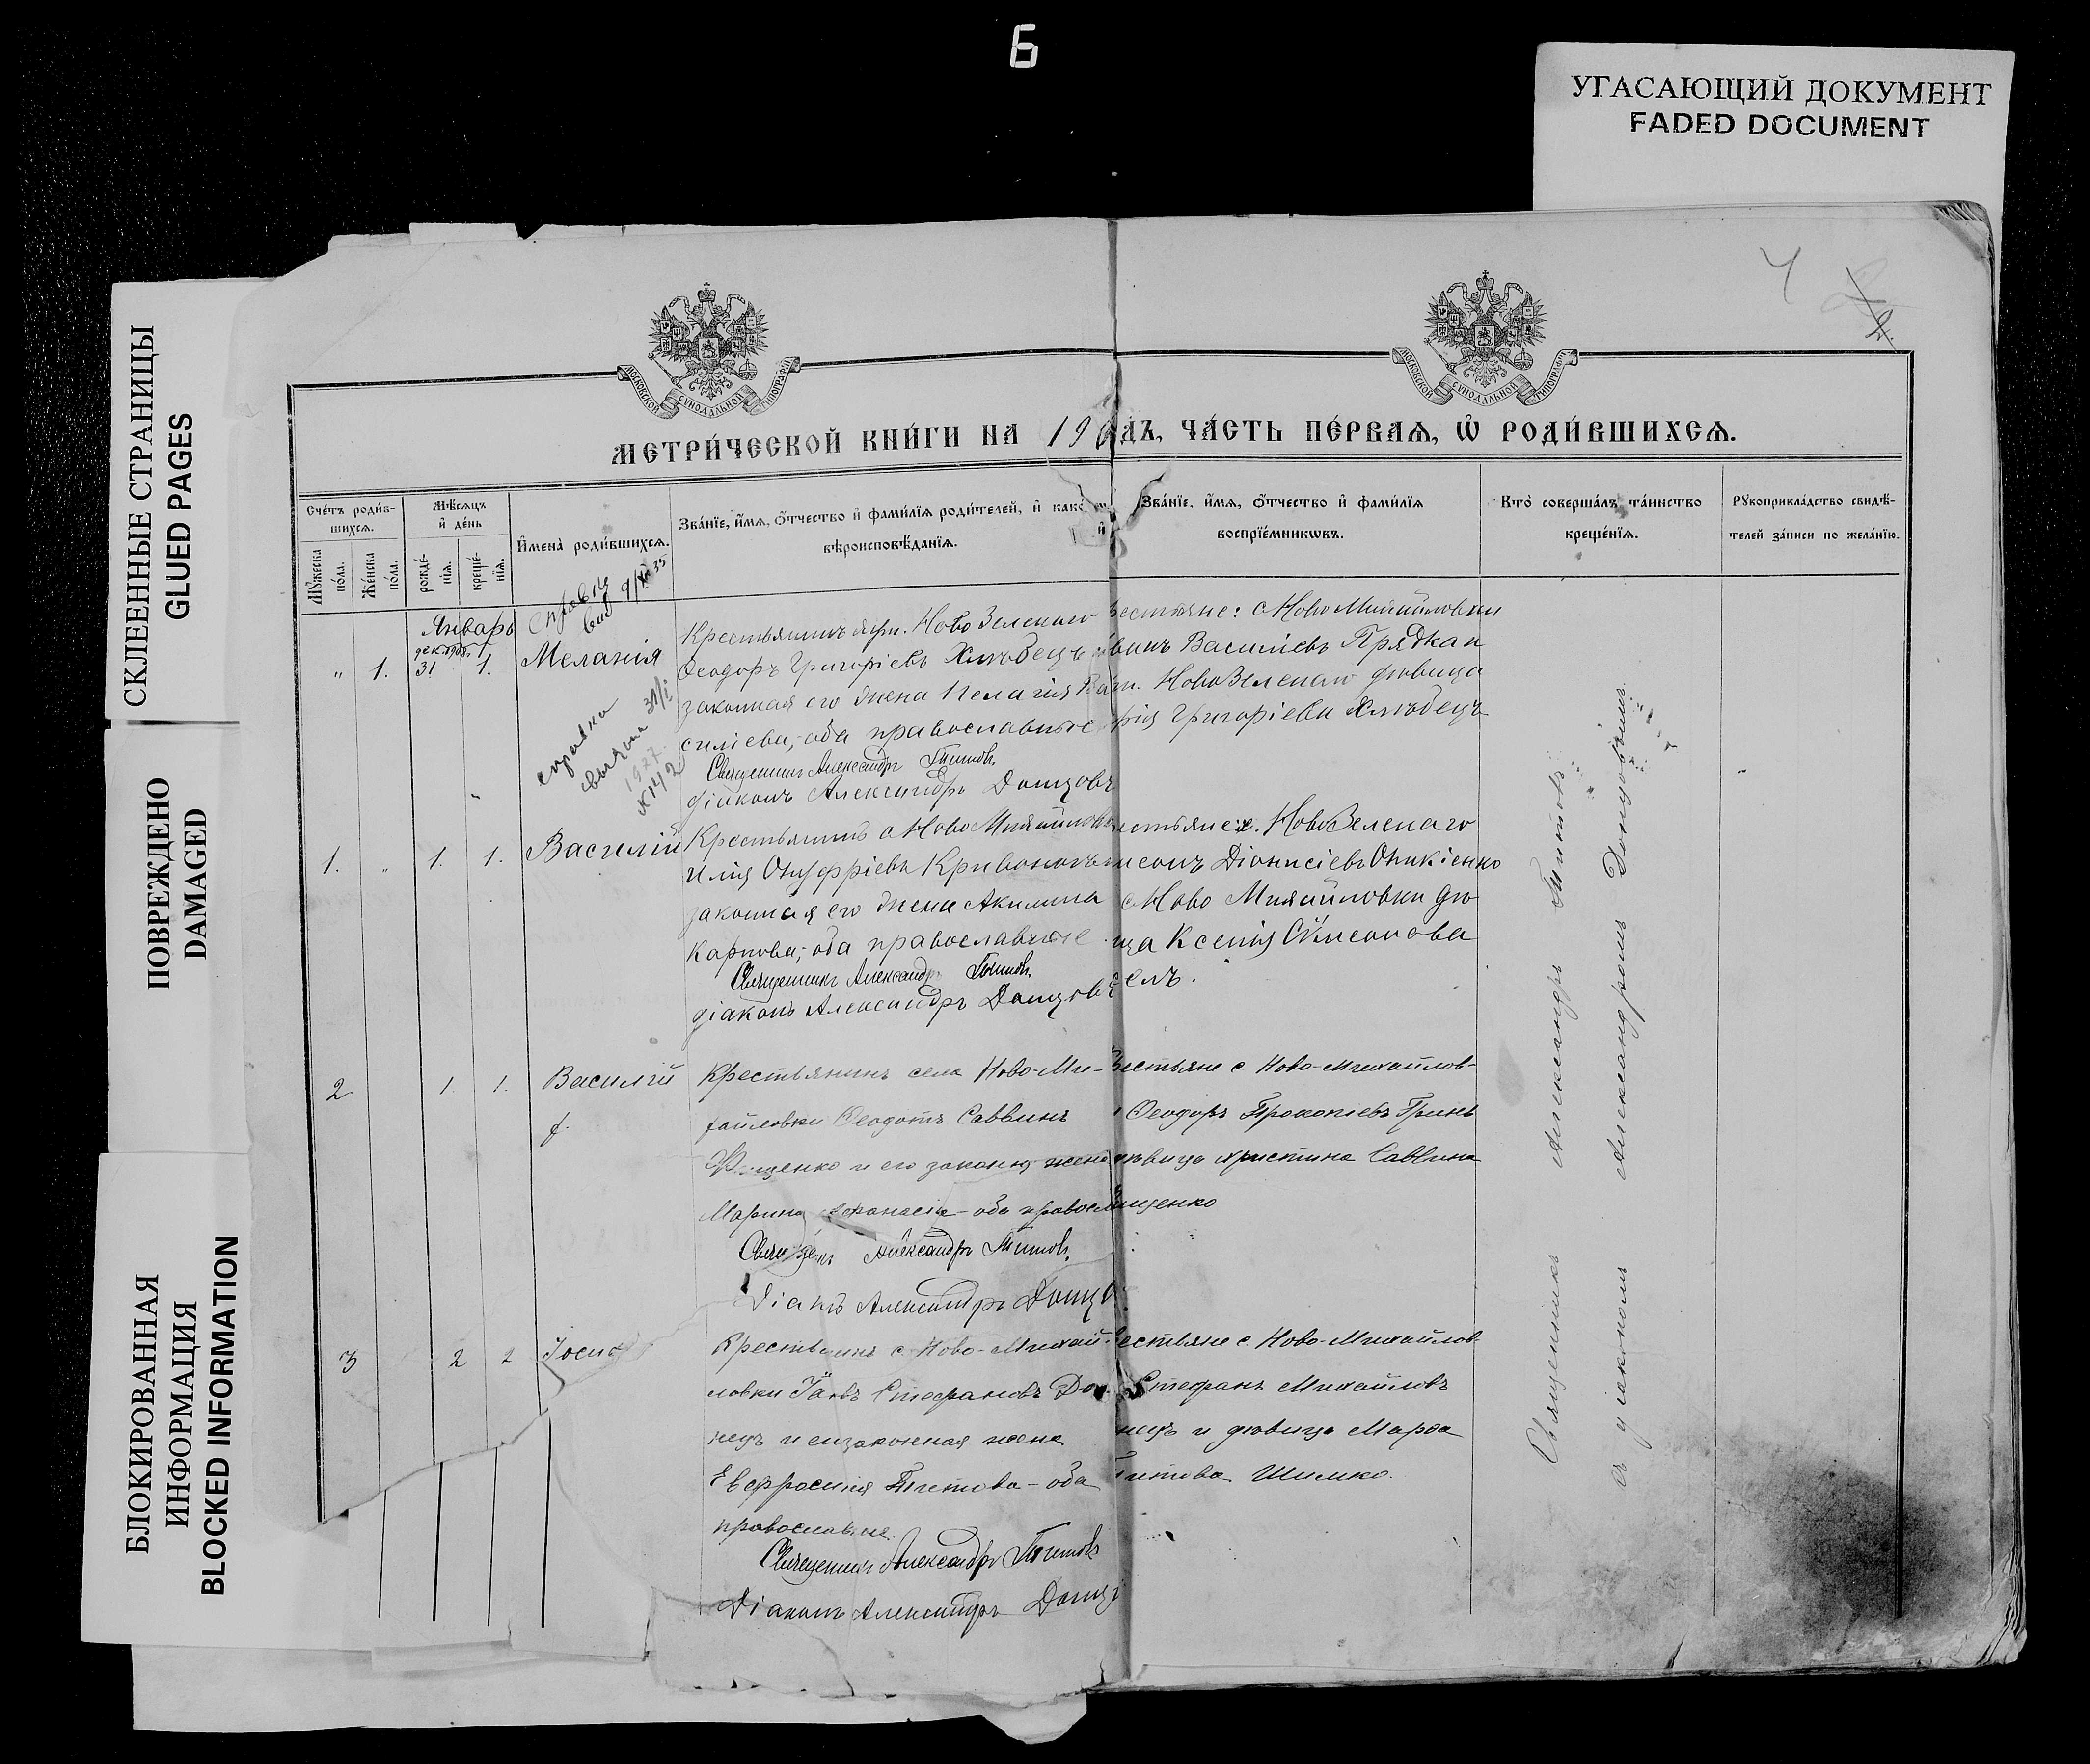 Б
УГАСАЮЩИЙ ДОКУМЕНТ
FADED DOCUMENT
СКЛЕЕННЫЕ СТРАНИЦЫ
GLUED PAGES
ПОВРЕЖДЕНО
DAMAGED
БЛОКИРОВАННАЯ
ИНФОРМАЦИЯ
BLOCKED INFORMATION
4
МОСКОВСКОЙ СѴНОДАЛЬНОЙ ТИПОГРАФІИ
МОСКОВСКОЙ СѴНОДАЛЬНОЙ ТИПОГРАФІИ
МЕТРИ́ЧЕСКОЙ КНИ́ГИ НА 190 ДЪ, ЧА́СТЬ ПЕ́РВАѦ, Ѡ РОДИ́ВШИХСѦ.
Сче́тъ роди́в-
шихсѧ.
Мꙋ́жеска по́ла.
Же́нска по́ла.
Мѣ́сѧцъ
и҆ де́нь
рожде́-
нїѧ.
креще́-
нїѧ.
И҆мена̀ роди́вшихсѧ.
Зва́нїе, и҆́мѧ, ѻ҆́тчество и҆ фами́лїѧ роди́телей, и҆ как
вѣроисповѣ́данїѧ.
Зва́нїе, и҆́мѧ, ѻ҆́тчество и҆ фами́лїѧ
воспрїе́мникѡвъ.
Кто̀ соверша́лъ та́инство
креще́нїѧ.
Рꙋкоприкла́дство свидѣ́-
телей за́писи по жела́нїю.
Январь
декабря
" 1. 31 1. Меланія
справка
выдана 31/I
1927
№142
Крестьянинъ хут. Ново Зеленаго
Ѳеодоръ Григоріевъ Хлѣбецъ и
законная его жена Пелагія Ва
сильева, оба православные
Священникъ Александръ Титовъ.
діаконъ Александръ Донцовъ
рестьяне: с Ново Михайловки
ванъ Василіевъ Прядка и
т. Ново Зеленаго дѣвица
рія Григоріева Хлѣбецъ
1. " 1. 1. Василій
Крестьянинъ с Ново Михайловки
Илія Онуфріевъ Кривоносъ и
законная его жена Акилина
Карпова, оба православные
Священникъ Александръ Титовъ.
діаконъ Александръ Донцовъ
рестьяне: х. Ново Зеленаго
меонъ Діонисіевъ Оникіенко
с Ново Михайловки дѣ
ица Ксенія Сѵмеонова
елъ.
2 1. 1. Василій
Крестьянинъ села Ново-Ми-
хайловки Ѳеодотъ Саввинъ
Фищенко и его законн жена
Марина Аѳанасіева - оба правосл
Священ Александръ Титовъ.
Діаконъ Александръ Донцов
рестьяне с Ново-Михайлов-
Ѳеодоръ Прокопіевъ Гринь
дѣвица Христина Саввина
ищенко
3 2 2 Іосиф
Крестьянинъ с. Ново-Михай-
ловки Іаковъ Стефановъ Дон
нецъ и его законная жена
Евфросинія Титова - оба
православные.
Священникъ Александръ Титовъ
Діаконъ Александръ Донц
естьяне с. Ново-Михайлов-
Стефанъ Михайловъ
нецъ и дѣвица Марѳа
Титова Шимко.
Священникъ Александръ Титовъ
съ діакономъ Александромъ Донцовымъ